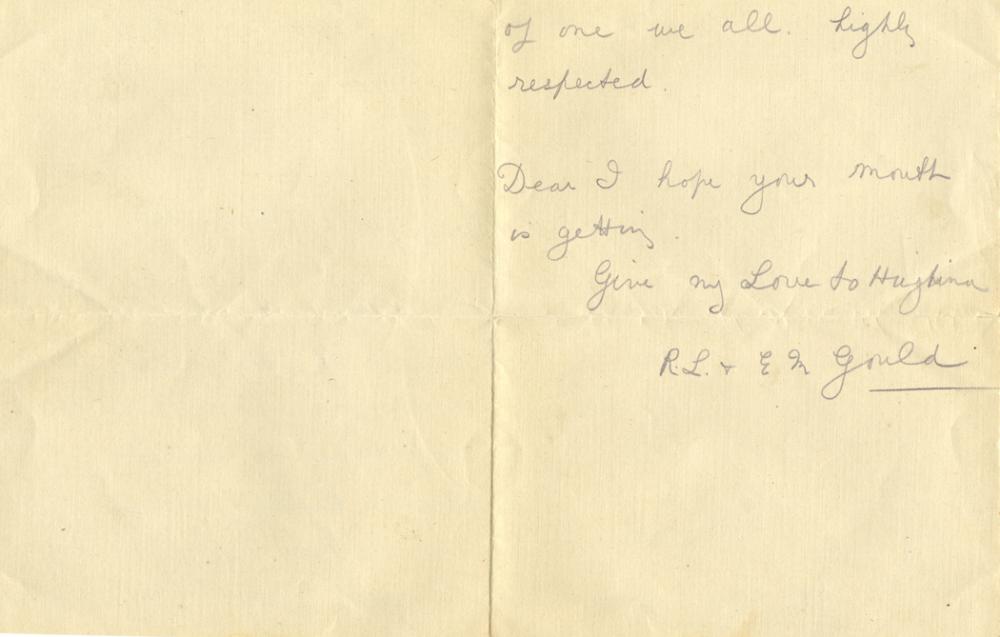 of one we all. highly
respected.
Dear I hope your mouth
is getting.
Give my Love to Hughina
R.L. + E M Gould